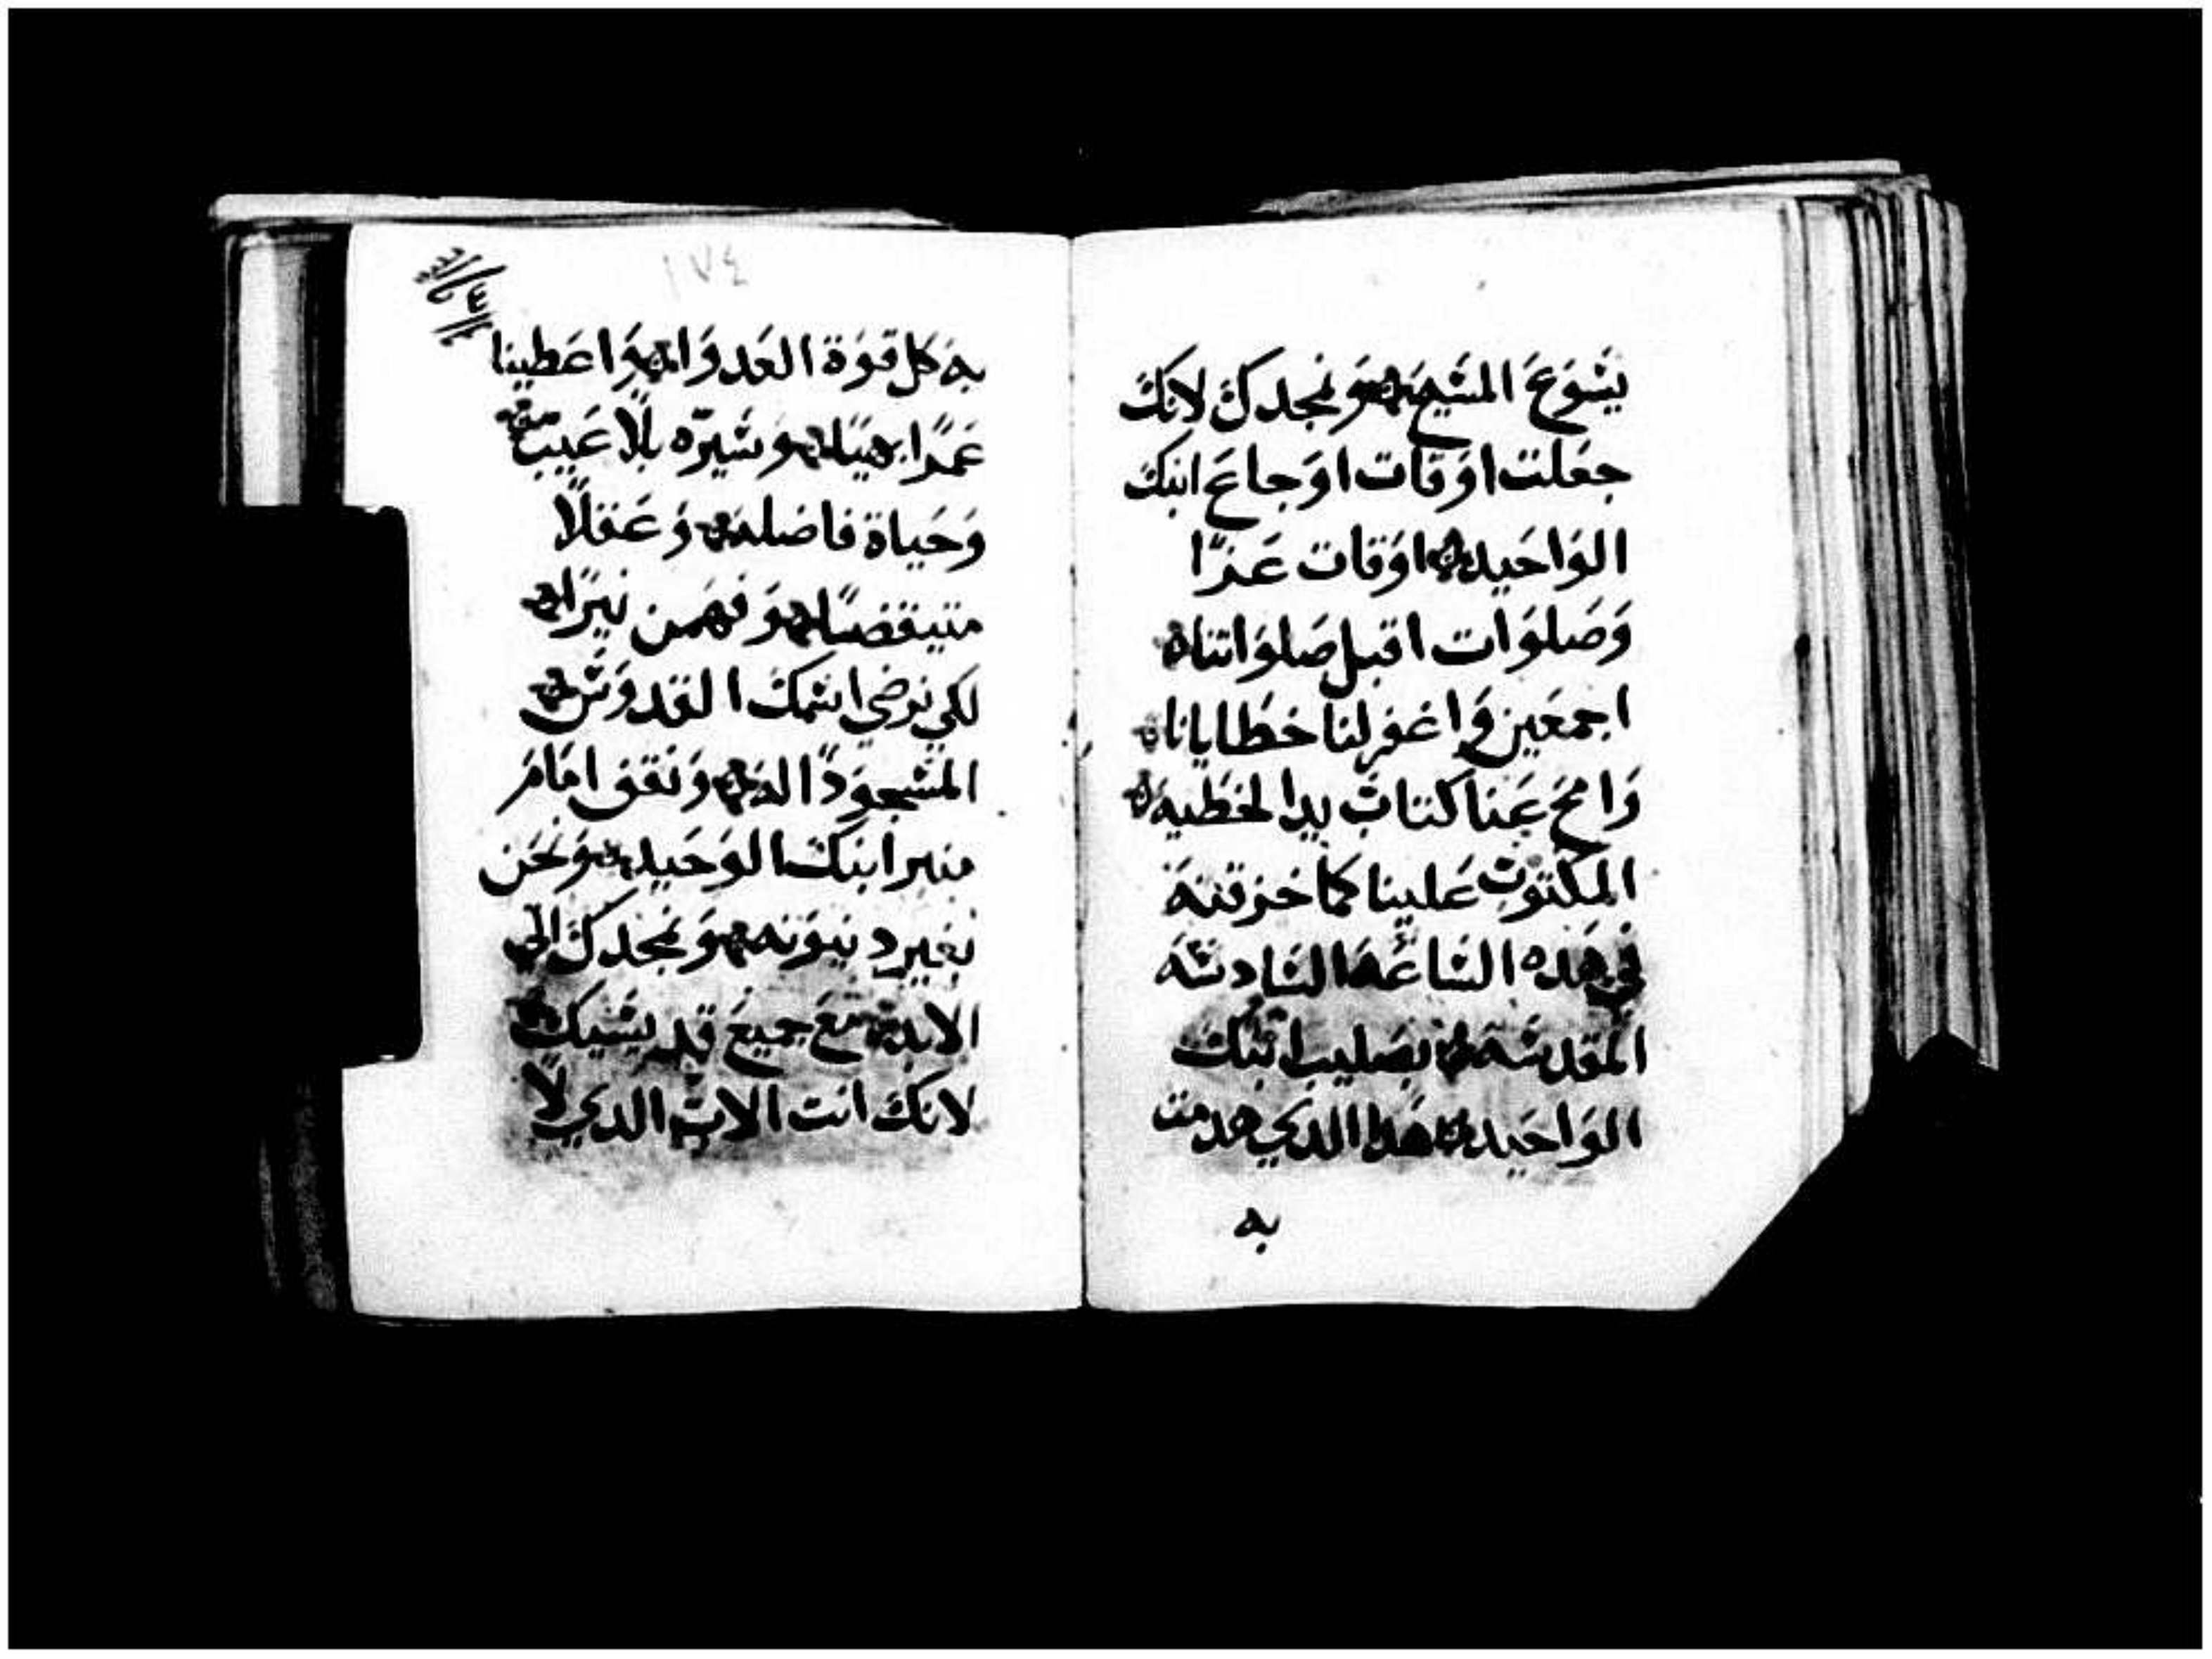 يسوع المسيح ونمجدك لانك
جعلت اوقات اوجاع ابنك
الواحيد اوقات عزا
وصلوات اقبل صلواتنا
اجمعين واغفر لنا خطايانا
وامح عنا كتاب يد الخطيه
المكتوب علينا كما خزقته
في هده الساعه السادسه
المقدسه بصليب ابنك
الواحيد هدا الدي هدمت
به
١٧٤
به كل قوة العدو اعطينا
عمرا بهيا وسيره بلا عيب
وحياة فاضله وعقلا
متيقضا وفهمن نيرا
لكي نرضي اسمك القدوس
المسجود اله ونقف امام
منبر ابنك الوحيد ونحن
بغير دينونه ونمجدك الي
الابد مع جميع قديسيك
لانك انت الاب الدي لا